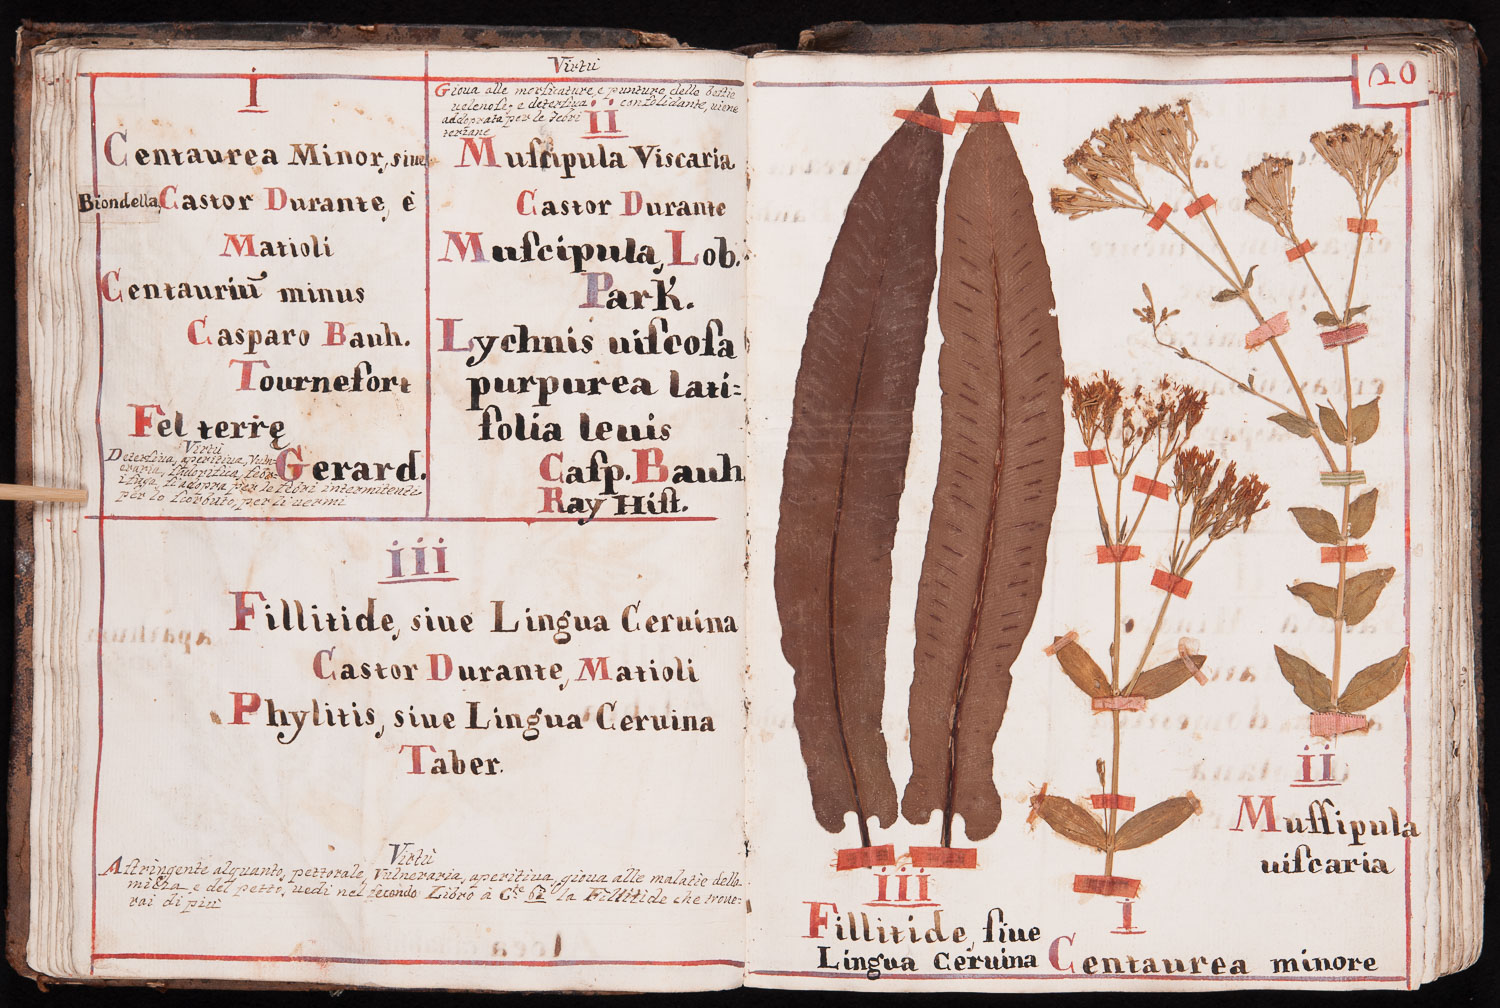 i
Centaurea Minor, siue
Biondella, Castor Durante, è
Matioli
Centauriū minus
Casparo Bauh.
Tournefort
Fel terrę
Gerard.
Virtù
Detersiua, aperitiua, Vuln-
eraria, febr-
ifuga, s'adopra per le febri intermitenti
per lo scorbuto, per li uermi
Virtù
Gioua alle morsicature, e punture, delle bestie
uelenose, e detersiua, consolidante, uiene
addoprata per le febri
terzane
II
Muscipula Viscaria
Castor Durante
Muſcipula, Lob.
Park.
Lychnis uiſcoſa
purpurea lati=
folia leuis
Caſp. Bauh
Ray Hiſt.
iii
Fillitide, siue Lingua Ceruina
Castor Durante, Matioli
Phylitis, siue Lingua Ceruina
Taber.
Virtù
Astringente alquanto, pettorale, Vulneraria, aperitiua, gioua alle malatie della
milza, e del petto, uedi nel secondo Libro à C.te 62 la Fillitide che troue=
rai di più
20
ii
Muſſipula
uiſcaria
iii
Fillitide, ſiue
Lingua Ceruina
i
Centaurea minore